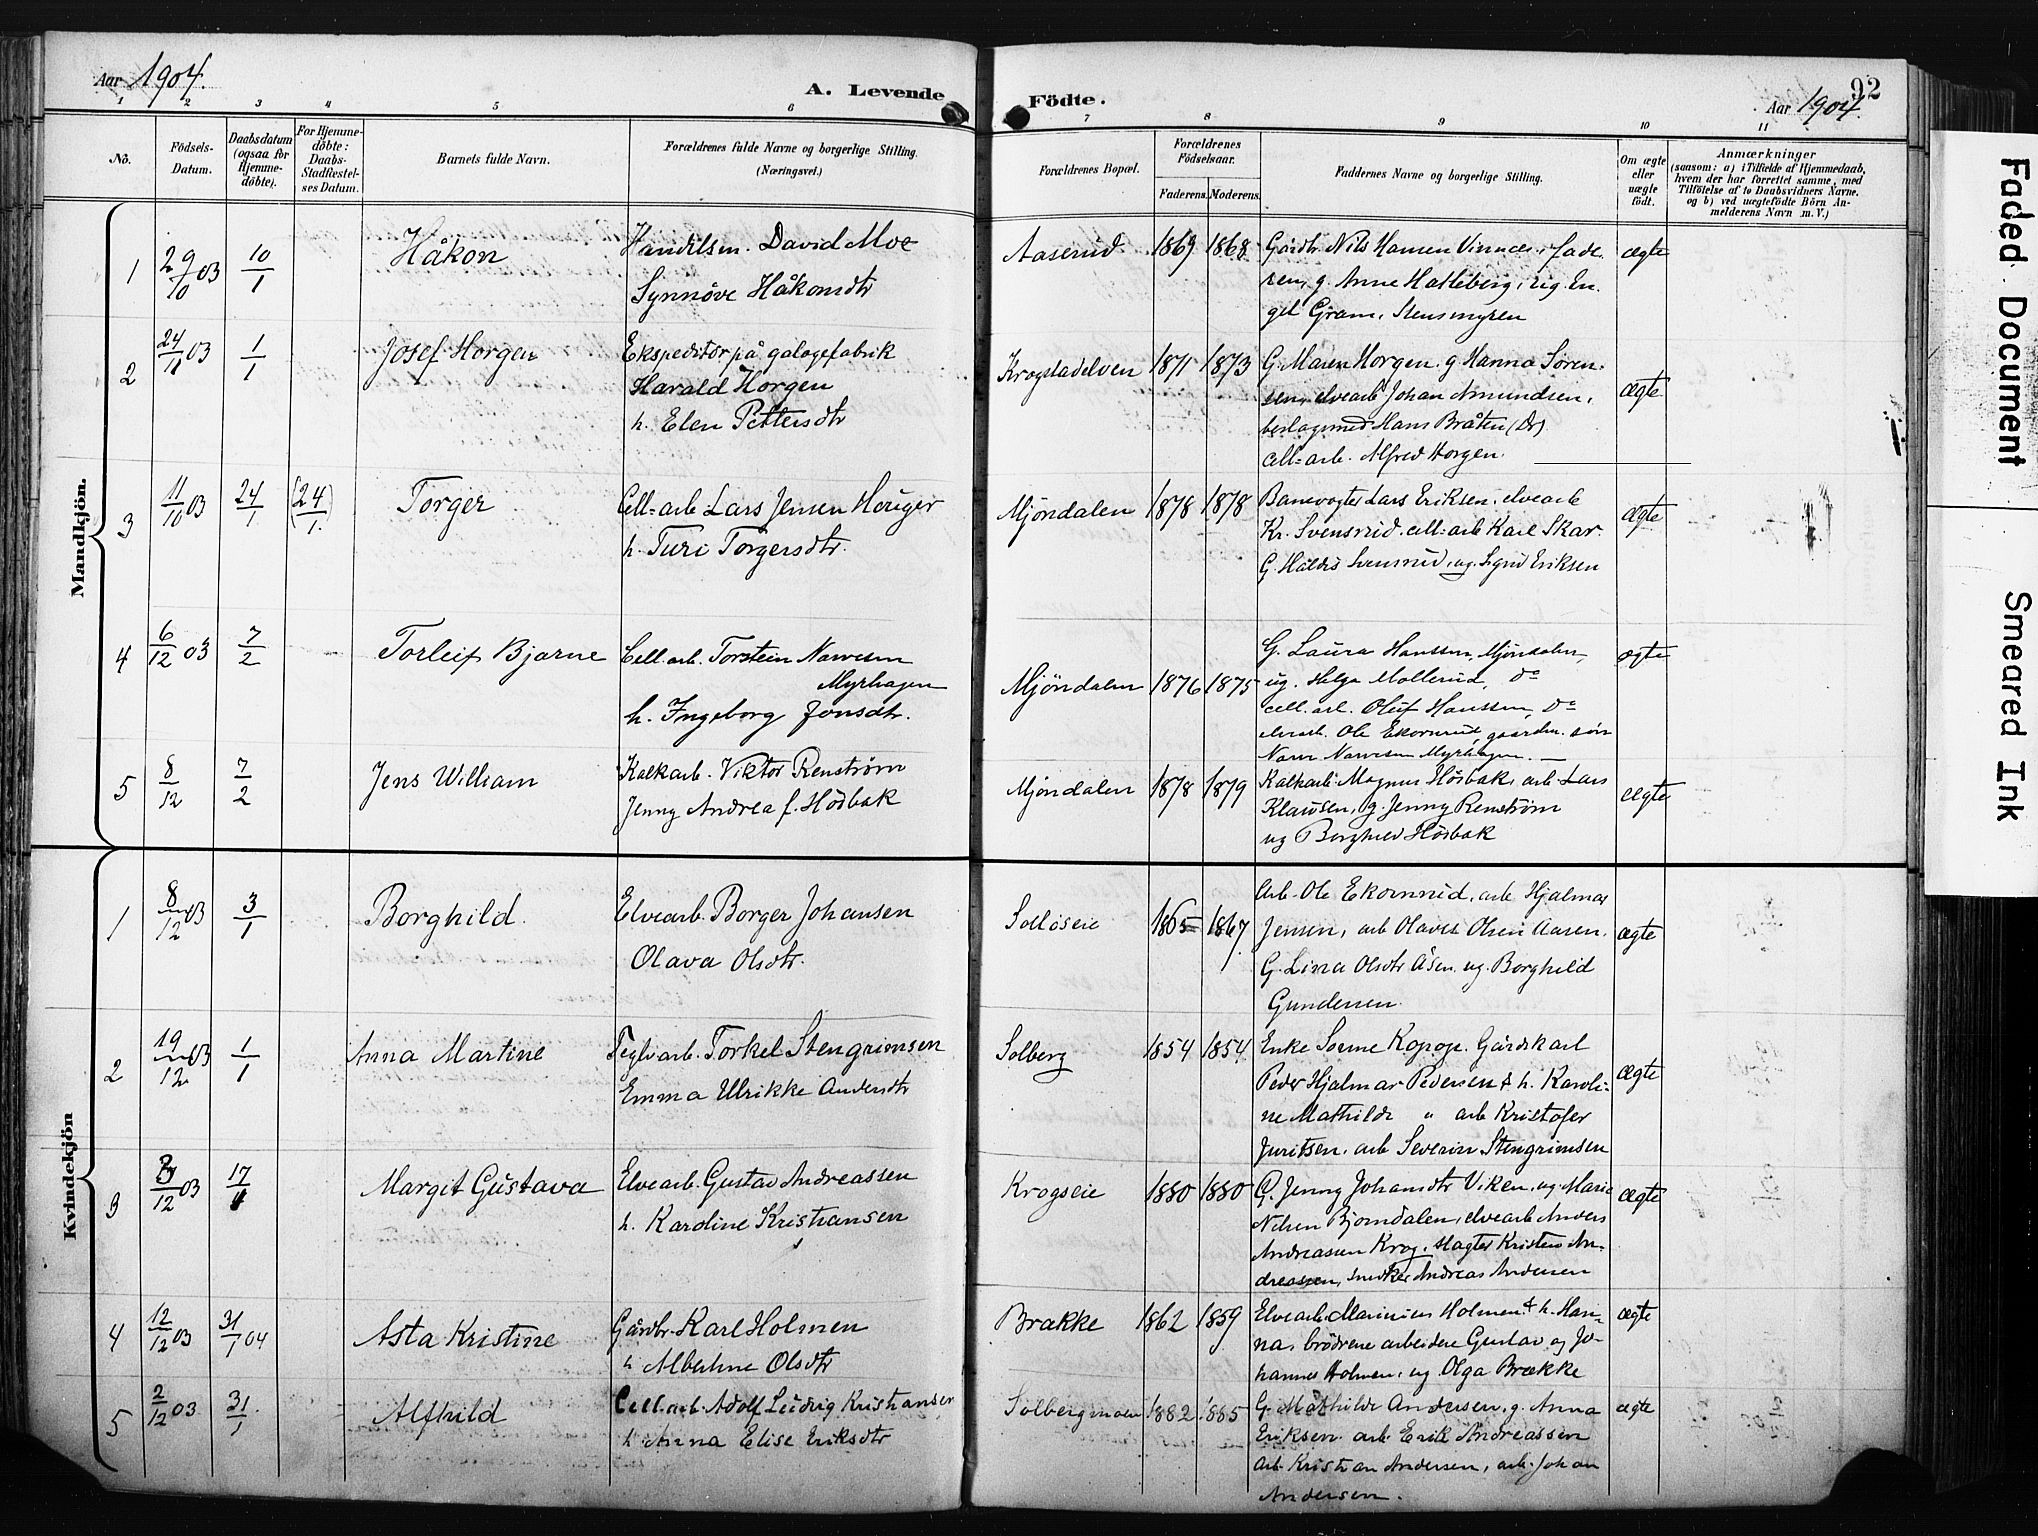 Aar 1904.
A. Levende Födte.
92
Aar 1904.
1 2 3 4 5 6 7 8 9 10 11
No.
Födsels-Datum.
Daabsdatum (ogsaa for Hjemmedöbte).
For Hjemmedöbte: Daabs-Stadfæstelses Datum.
Barnets fulde Navn.
Forældrenes fulde Navne og borgerlige Stilling. (Næringsvei.)
Forældrenes Bopæl.
Forældrenes Födselsaar.
Faderens. Moderens.
Faddernes Navne og borgerlige Stilling.
Om ægte eller uægte födt.
Anmærkninger
(saasom: a) i Tilfælde af Hjemmedaab,
hvem der har forrettet samme, med
Tilföielse af to Daabsvidners Navne,
og b) ved uægtefödte Börn Anmelderens Navn m. V.)
Mandkjön.
1 29/10 03 10/1 Håkon
Handelsm. David Moe
Synnöve Håkonsdtr
Aaserud 1869 1868
Gårdbr. Nils Hansen Vinnes, faderen, g. Anne Hatleberg, ug. Engel Gram, Stensmyren
ægte
2 24/11 03 1/1 Josef Horgen
Ekspeditör på galagefabrik
Harald Horgen
h. Elen Pettersdtr
Krogstadelven 1871 1873
G. Maren Horgen. g Hanna Sörensen, elvearb Johan Amundsen,
beslagsmed Hans Bråten (Dr)
cell=arb. Alfred Horgen.
ægte
3 11/10 03 24/1 (24/1) Torger
Cell=arb Lars Jensen
h. Turi Torgersdtr.
Mjöndalen 1878 1878
Banevogter Lars Eriksen, elvearb
Kr. Svensrud. cell=arb Karl Skar.
G. Haldis Svensrud, ug. Sigrid Eriksen
ægte
4 6/12 03 7/2 Torleif Bjarne
Cell.arb. Torstein Narvesen
Myrhagen
h. Ingeborg Jonsdtr.
Mjöndalen 1876 1875
G. Laura Hanssen, Mjöndalen,
ug. Helga Mollerud, do
cell.arb. Oluf Hanssen, Do
elvearb. Ole Ekornrud gaardm. sön
Narve Narvesen Myrhagen. —
ægte
5 8/12 7/2 Jens William
Kalkarb. Viktor Renström
Jenny Andrea f. Hösbak
Mjöndalen 1878 1879
Kalkarb. Magnus Hösbak, arb. Lars
Klausen, g. Jenny Renström
ug Borghild Hösbak
ægte
Kvindekjön
1 8/12 03 3/1 Borghild.
Elvearb. Borger Johansen
Olava Olsdtr.
1865 1867
Arb. Ole Ekornrud, arb Hjalmar
Jensen, arb Olaves Olsen Aasen.
G. Lina Olsdtr Åsen, ug. Borghild
Gundersen.
ægte
2 19/12 03 1/1 Anna Martine
Teglv.arb. Torkel Stengrimsen
Emma Ulrikke Andersdtr
Solberg 1854 1854
Enke Gårdskarl
Peder Hjalmar Pedersen & h. Karoline Mathilde " arb Kristofer
Juritsen, arb Severin Stengrimsen
ægte
3 12 03 17/1 Margit Gustava
Elvearb. Gustav Andreassen
h. Karoline Kristiansen
Krogseie 1880 1880
G. Jenny Johansdtr Viken, ug. Marie
Nilsen Bjorndalen, elvearb Anders
Andreassen Krog, slagter Kristen Andreassen, snedker Andreas Andersen
ægte
4 12/12 03 31/1 04 Asta Kristine
Gårdbr. Karl Holmen
h Albertine Olsdtr
Brække 1862 1859
Elvearb. Marinius Holmen & h. Hanna, brödrene arbeidere Gustav og Johannes Holmen, ug Olga Brække
ægte
5 2/12 03 31/1 Alfhild
Cell.arb. Adolf Ludvig Kristiansen
h Anna Elise Eriksdtr
Solbergmoen 1882 1885
G. Mathilde Andersen, g. Anna
Eriksen. arb. Erik Andreassen
arb. Kristian Andersen, arb. Johan
Andersen.
ægte
Faded Document
Smeared Ink